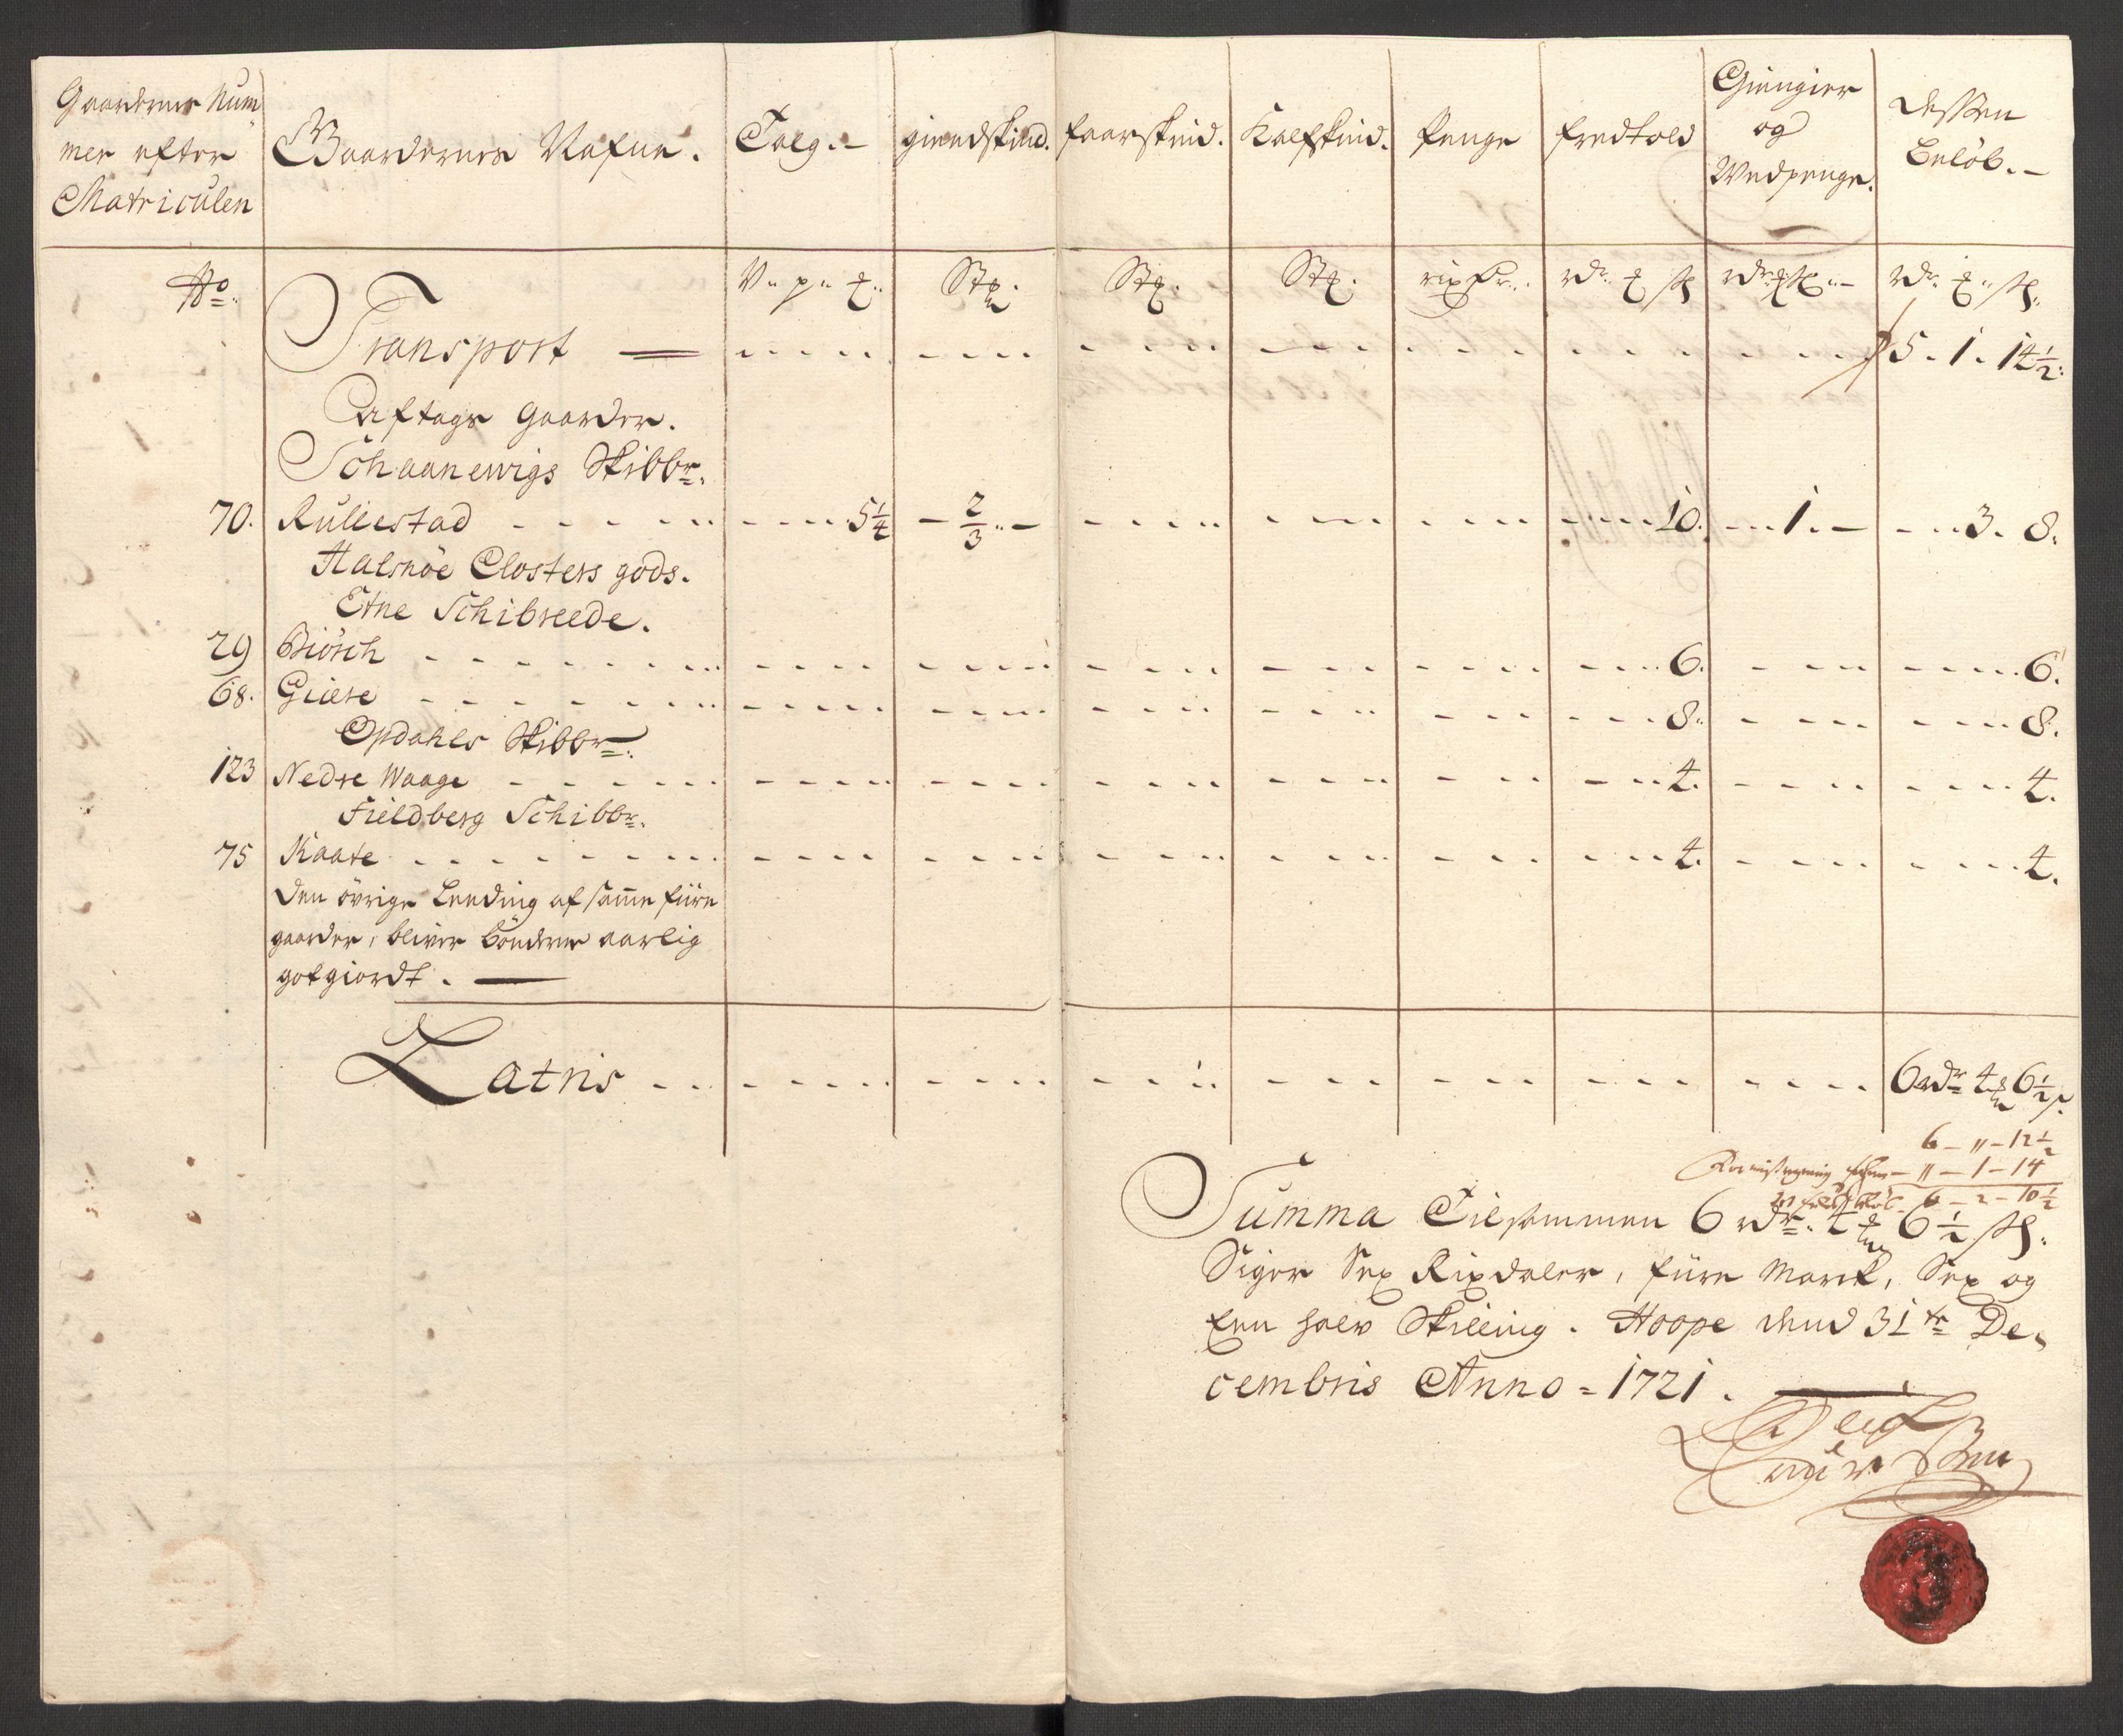 Gaardernes Num-
mer efter
Matriculen
Gaardernes Nafne.
Talg.
giedskind.
faarskind.
Kalfskind.
Penge
fredtold
Giengier
og
Wedpenge.
dessen
Beløb.
No.
V. p. 
Stk.
Stk.
Stk.
rixdr.
rdr. ß
rdr.
rdr. ß.
Transport 5. 1. 14½.
Aftags Gaarder.
Schaanewigs Skibbr.
70. Rullestad 5¼ 2/3 10. 1. 3. 8.
Halsnöe Closters gods.
Etne Schibreede.
29 Biörch 6. 6.
68. Giære 8. 8.
Opdahls Skibbr.
123 Nedre Waage 4. 4.
Fieldberg Schibbr.
75 Kaate 4. 4.
den övrige Leeding af samme fiire
gaarder, bliver bönderne aarlig
gotgiordt.
Latris 6 rdr 4 6½ ß.
6 - " - 12½
" - 1 - 14
6 - 2 - 10½
Summa Tilsammen 6 rdr. 4 6½ ß.
Siger Sex Rixdaler, fiire Marck, Sex og
een halv Skilling. Hoope dend 31te De-
cembris Anno = 1721.